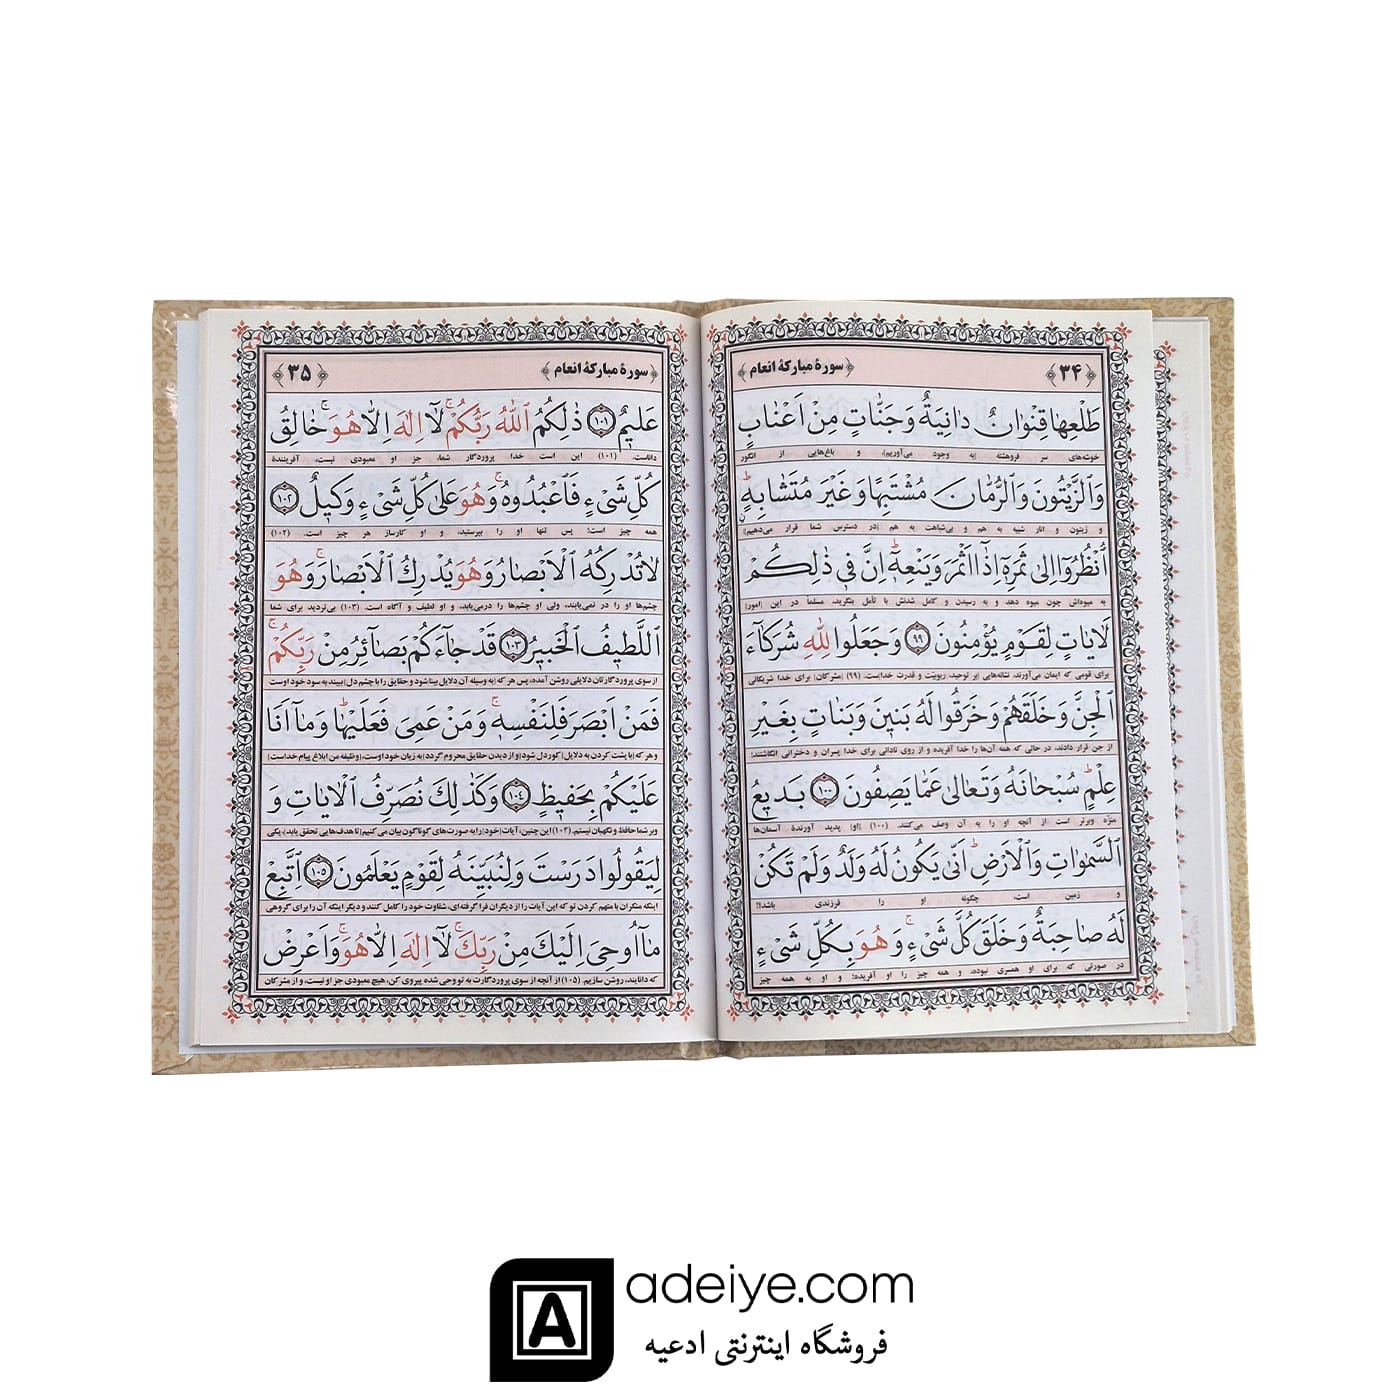 ﴿۳۴﴾ ﴿سورهٔ مبارکهٔ انعام﴾
طَلْعِها قِنْوانٌ دانِیَةٌ وَ جَنّاتٍ مِنْ اَعْنابٍ
خوشه‌های سر فروهشته [به وجود می‌آوریم]، و باغ‌هایی از انگور
وَ الزَّیْتُونَ وَ الرُّمّانَ مُشْتَبِهًا وَ غَیْرَ مُتَشابِهٍ ؕ
و زیتون و انار شبیه به هم و بی‌شباهت به هم [در دسترس شما قرار می‌دهیم]؛
اُنْظُرُوٓا اِلیٰ ثَمَرِهٖٓ اِذآ اَثْمَرَ وَ یَنْعِهٖ ؕ اِنَّ فی ذٰلِکُمْ
به میوه‌اش چون میوه دهد و به رسیدن و کامل شدنش با تأمل بنگرید، مسلماً در این [امور]
لَایاتٍ لِقَوْمٍ یُؤْمِنُونَ ﴿۹۹﴾ وَ جَعَلُوا لِلّٰهِ شُرَکآءَ
برای قومی که ایمان می‌آورند، نشانه‌هایی [بر توحید، ربوبیّت و قدرت خدا]ست. (۹۹) [مشرکان] برای خدا شریکانی
الْجِنَّ وَ خَلَقَهُمْ وَ خَرَقُوا لَهُ بَنینَ وَ بَناتٍ بِغَیْرِ
از جن قرار دادند، در حالی که همه آن‌ها را خدا آفریده و از روی نادانی برای خدا پسران و دخترانی انگاشتند؛
عِلْمٍ ؕ سُبْحانَهُ وَ تَعالیٰ عَمّا یَصِفُونَ ﴿۱۰۰﴾ بَدیعُ
منزّه وبرتر است از آنچه او را به آن وصف می‌کنند. (۱۰۰) [او] پدید آورندهٔ آسمان‌ها
السَّمٰواتِ وَ الْاَرْضِ ؕ اَنّیٰ یَکُونُ لَهُ وَلَدٌ وَ لَمْ تَکُنْ
و زمین است، چگونه او را فرزندی باشد؟!
لَهُ صاحِبَةٌ وَ خَلَقَ کُلَّ شَیْءٍ ۚ وَ هُوَ بِکُلِّ شَیْءٍ
در صورتی که برای او همسری نبوده، و همه چیز را او آفریده؛ و او به همه چیز
﴿سورهٔ مبارکهٔ انعام﴾ ﴿۳۵﴾
عَلیمٌ ﴿۱۰۱﴾ ذٰلِکُمُ اللّٰهُ رَبُّکُمْ ۚ لَآ اِلٰهَ اِلّا هُوَ ۚ خٰالِقُ
داناست. (۱۰۱) این است خدا پروردگار شما، جز او معبودی نیست، آفرینندهٔ
کُلِّ شَیْءٍ فَاعْبُدُوهُ ۚ وَ هُوَ عَلیٰ کُلِّ شَیْءٍ وَکیلٌ ﴿۱۰۲﴾
همه چیز است؛ پس تنها او را بپرستید، و او کارساز هر چیز است. (۱۰۲)
لا تُدْرِکُهُ الْاَبْصارُ وَ هُوَ یُدْرِكُ الْاَبْصارَ ۚ وَ هُوَ
چشم‌ها او را در نمی‌یابند، ولی او چشم‌ها را درمی‌یابد، و او لطیف و آگاه است. (۱۰۳) بی‌تردید برای شما
اللَّطیفُ الْخَبیرُ ﴿۱۰۳﴾ قَدْ جآءَکُمْ بَصآئِرُ مِنْ رَبِّکُمْ ۚ
از سوی پروردگارتان دلایلی روشن آمده، پس هر که [به وسیله آن دلایل بینا شود و حقایق را با چشم دل] ببیند به سود خود اوست
فَمَنْ اَبْصَرَ فَلِنَفْسِهٖ ۚ وَ مَنْ عَمِیَ فَعَلَیْها ؕ وَ مآ اَنَا
و هر که [با پشت کردن به دلایل] کوردل شود [و از دیدن حقایق محروم گردد] به زیان خود اوست، [وظیفه من ابلاغ پیام خداست]
عَلَیْکُمْ بِحَفیظٍ ﴿۱۰۴﴾ وَ کَذٰلِكَ نُصَرِّفُ الْایاتِ وَ
وبر شما حافظ و نگهبان نیستم. (۱۰۴) این چنین، آیات [خود] را به صورت‌های گوناگون بیان می کنیم [تا هدف‌هایی تحقق یابد]، یکی
لِیَقُولُوا دَرَسْتَ وَ لِنُبَیِّنَهُ لِقَوْمٍ یَعْلَمُونَ ﴿۱۰۵﴾ اِتَّبِعْ
اینکه منکران با متهم کردن تو که این آیات را از دیگران فرا گرفته‌ای، شقاوت خود را کامل کنند و دیگر اینکه آن را برای گروهی
مآ اُوحِیَ اِلَیْكَ مِنْ رَبِّكَ ۚ لَآ اِلٰهَ اِلّا هُوَ ۚ وَ اَعْرِضْ
که دانایند، روشن سازیم. (۱۰۵) از آنچه از سوی پروردگارت به تو وحی شده پیروی کن، هیچ معبودی جز او نیست، و از مشرکان
A adeiye.com
فروشگاه اینترنتی ادعیه